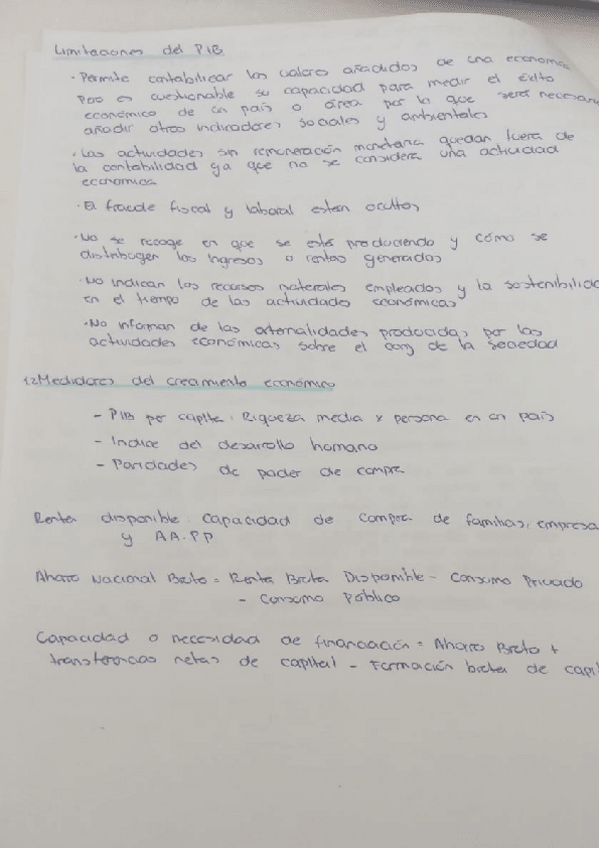 Limitaciones del PIB
· Permite contabilizar los valores añadidos de una economía
Pero es cuestionable su capacidad para medir el éxito
económico de un país o área por lo que será necesari
añadir otros indicadores sociales y ambientales
· Las actividades sin remuneración monetaria quedan fuera de
la contabilidad ya que no se considera una actividad
economica
· El fraude fiscal y laboral estan ocultos
· No se recoge en que se está produciendo y cómo se
distribuyen los ingresos o rentas generados
· No indican los recursos naturales empleados y la sostenibilid
en el tiempo de las actividades económicas
· No informan de las externalidades producidas por las
actividades económicas sobre el conj de la sociedad
1.2 Medidores del crecimiento económico
- PIB per capita: Riqueza media x persona en un país
- Indice del desarrollo humano
- Paridades de poder de compra
Renta disponible: capacidad de compra de familias, empresa
y AA.PP
Ahorro Nacional Bruto = Renta Bruta Disponible - Consumo Privado
- Consumo Público
Capacidad o necesidad de financiación = Ahorro Bruto +
transferencias netas de capital - Formación bruta de capi